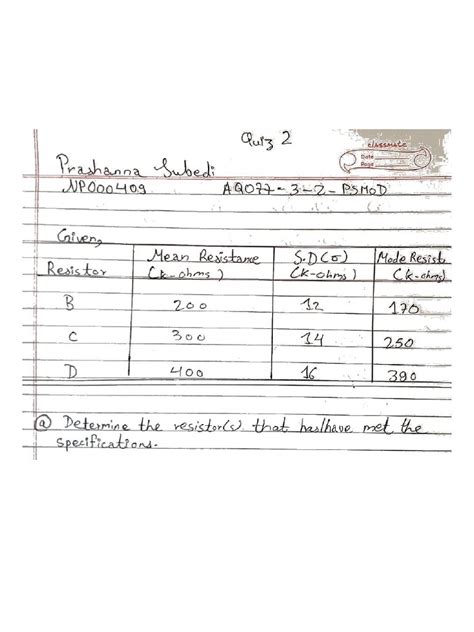 Quiz 2
classmate
Date
Page
Prashanna Subedi
NP000409 AQ077-3-2-PSMOD
Given,
Resistor Mean Resistance (k-ohms) S.D(σ) (k-ohms) Mode Resist (k-ohms)
B 200 12 170
C 300 14 250
D 400 16 390
(a) Determine the resistor(s) that has/have met the
specifications.